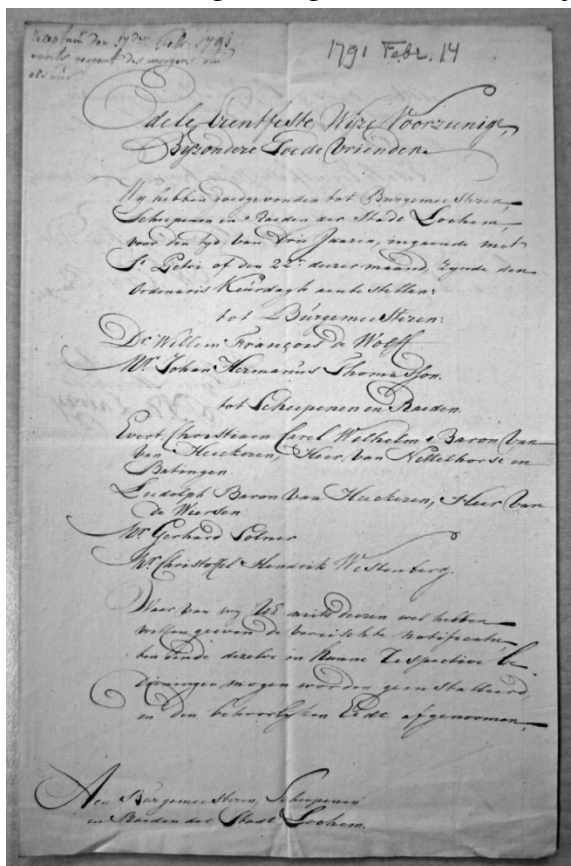 Receptum den 17den Febr. 1791
des morgens om
1791 Febr. 14
Edele Erentfeste Wijze Voorzienige,
Byzondere Goede Vrienden.
Wy hebben goedgevonden tot Burgemeesteren,
Scheepenen en Raeden der Stadt Lochem,
voor den tyd van Drie Jaaren, ingaende met
St. Petri of den 22n. dezer maand, zynde den
Ordinaris Keurdagh aente stellen:
tot Burgemeesteren:
Dr. Willem François de Wolff
Mr. Johan Hermanus Thomasson.
tot Scheepenen en Raeden.
Evert Christiaen Carel Wilhelm Baron van
van Heeckeren, Heer van Nettelhorst en
Batingen.
Ludolph Baron van Heeckeren, Heer van
de Wiersen
Mr Gerhard Solner
Mr. Christoffel Hendrik Westenberg.
Waar van wy UE mits deezen wel hebben
willen geeven de vereischte notificatie,
ten einde dezelve in hunne respective be-
dieningen mogen worden geinstalleerd,
en den behoorlyken Eedt afgenoomen,
Aen Burgemeesteren, Scheepenen
en Raeden der Stadt Lochem.